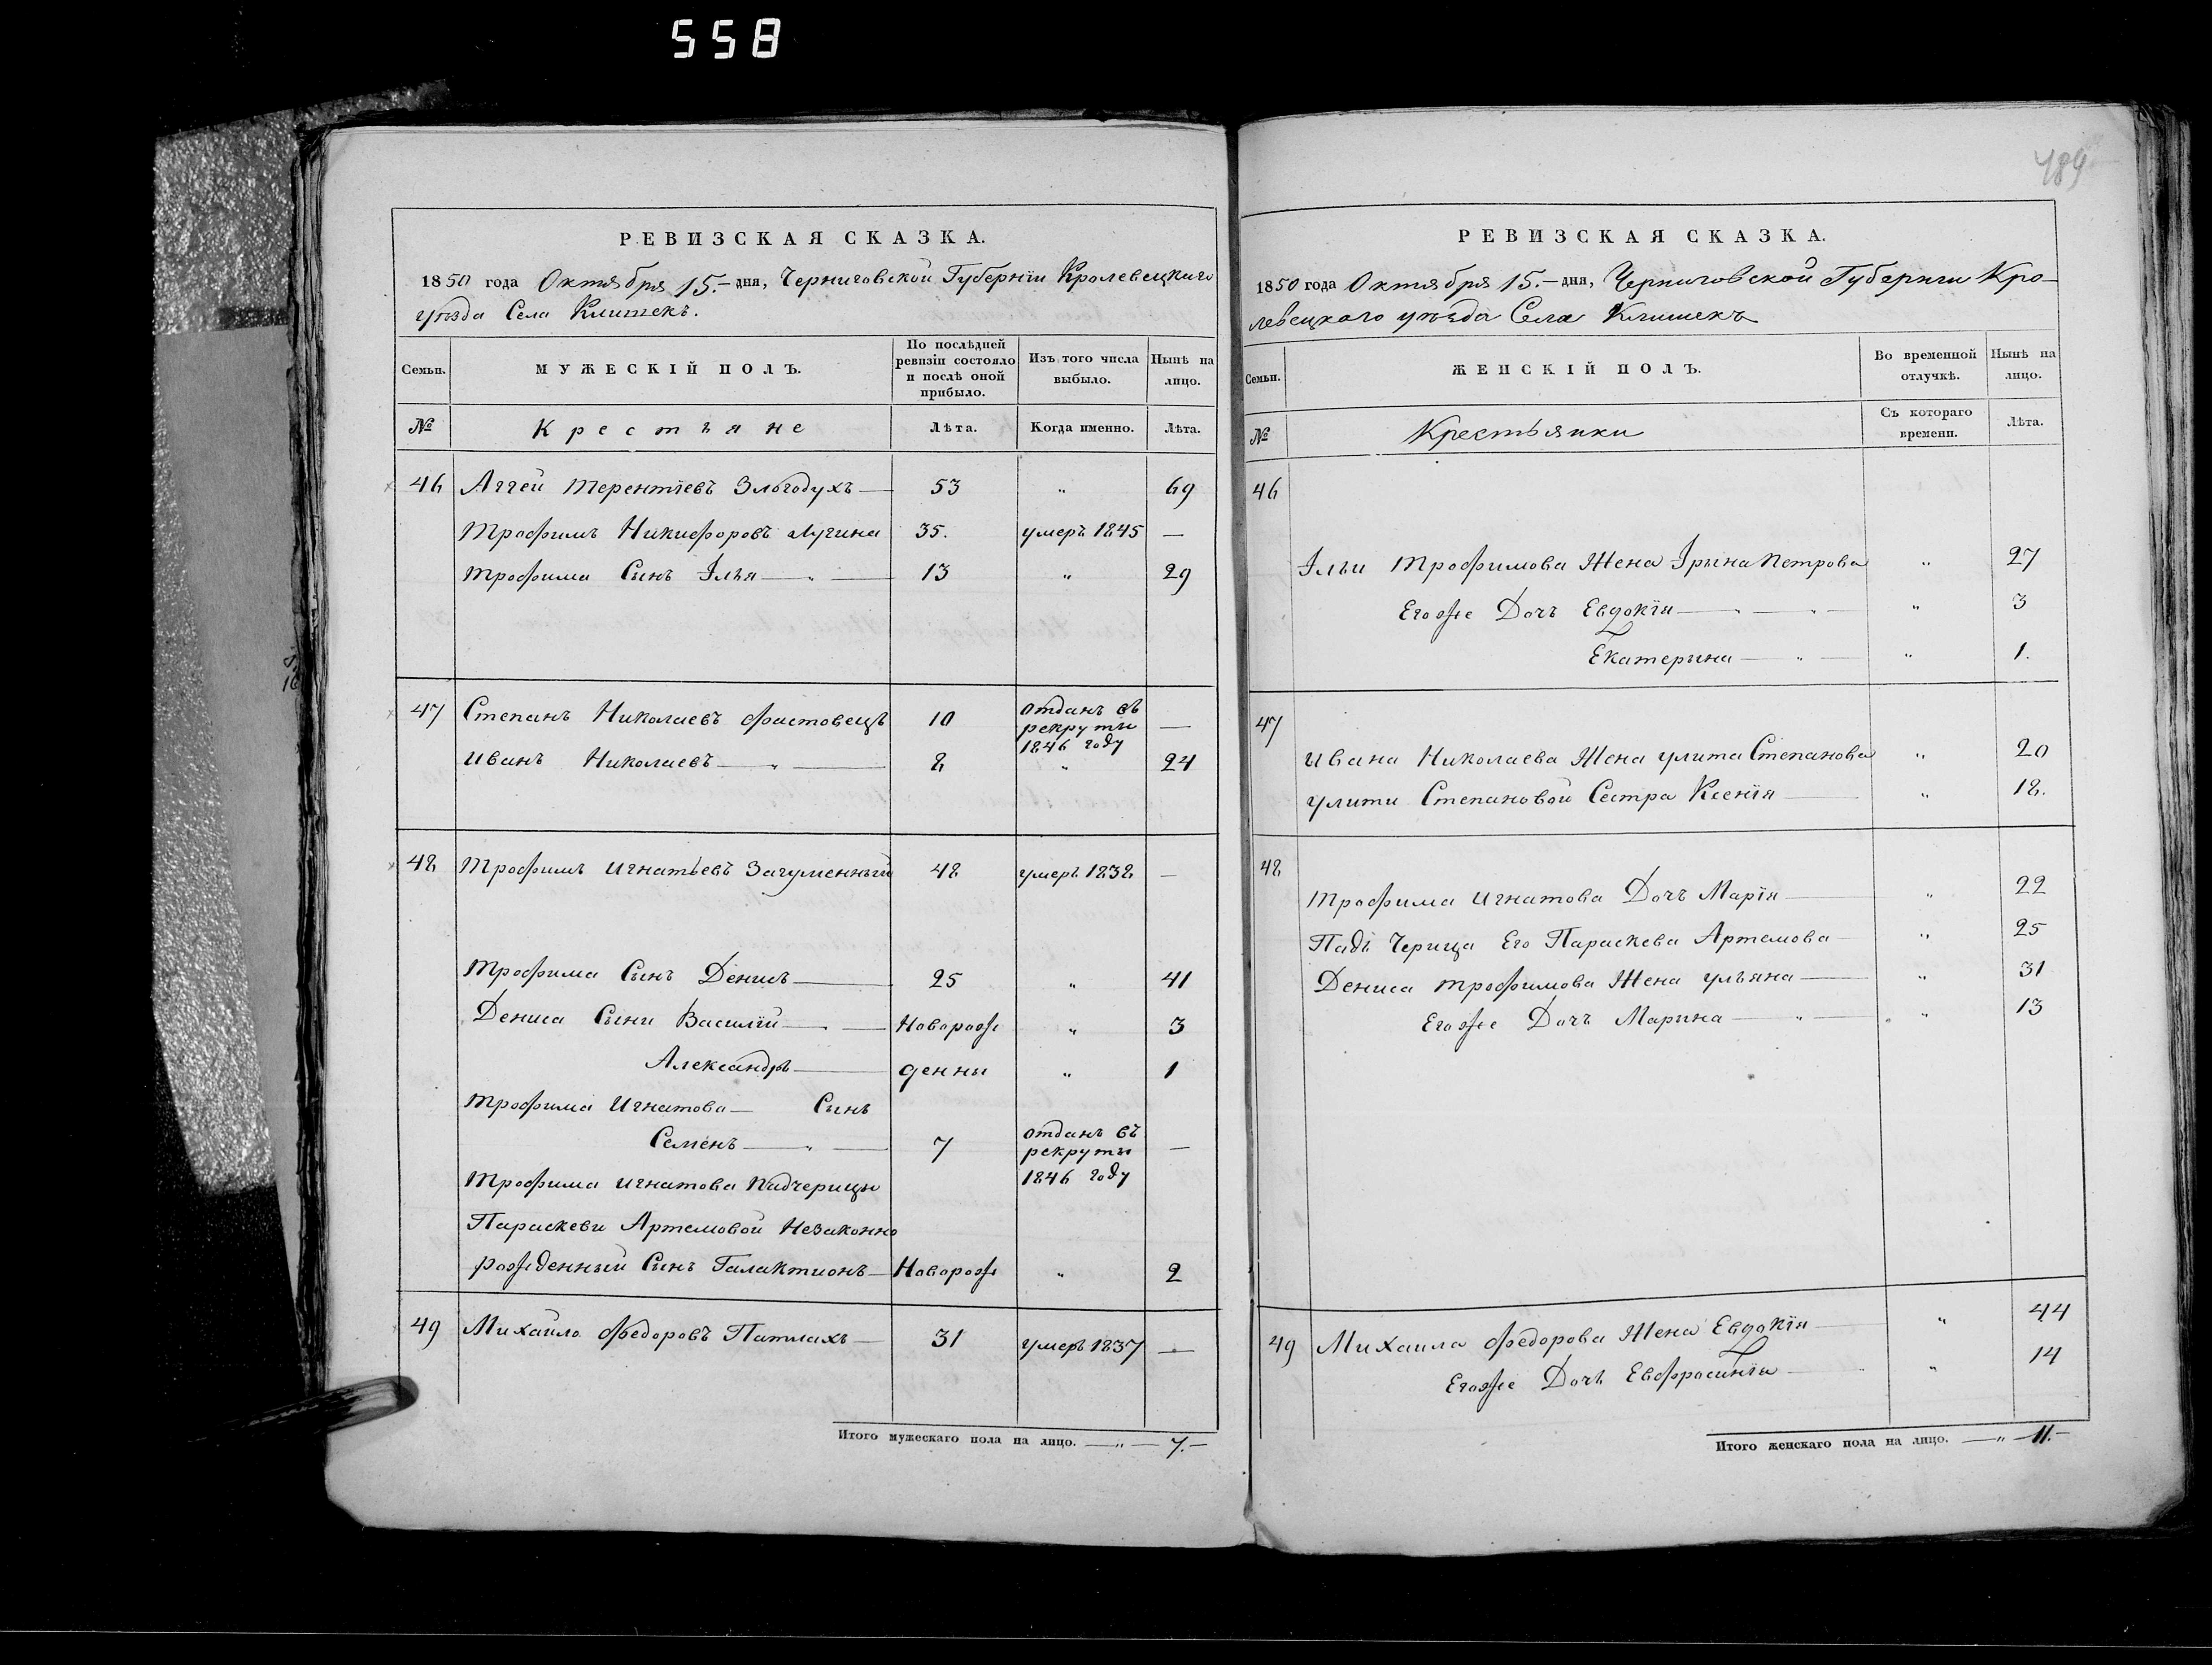 558
РЕВИЗСКАЯ СКАЗКА.
1850 года Октября 15.– дня, Черниговской Губернїи Кролевецкого
уѣзда Села Клишекъ.
Семьи.
МУЖЕСКІЙ ПОЛЪ.
По послѣдней
ревизіи состояло
и послѣ оной
прибыло.
Изъ того числа
выбыло.
Нынѣ на
лицо.
№
Крестьяне
Лѣта.
Когда именно.
Лѣта.
46 Аггей Терентїевъ Злогодухъ — 53 „ 69
Трофимъ Никифоровъ Лугина 35. умеръ 1845 —
Трофима Сынъ Iлья — „ — 13 „ 29
47 Степанъ Николаевъ Фастовецъ 10 отданъ въ
рекруты
1846 году —
Иванъ Николаевъ — „ — 8 „ 24
48 Трофимъ Игнатьевъ Загуменный 48 умеръ 1838 —
Трофима Сынъ Денисъ — 25 „ 41
Дениса Сыни Василїй — „ — Новорож „ 3
Александръ — денны „ 1
Трофима Игнатова — Сынъ
Семенъ — „ — 7 отданъ въ
рекруты
1846 году —
Трофима Игнатова Падчерицы
Параскеви Артемовой Незаконно
рожденный Сынъ Галактионъ — Новорож „ 2
49 Михайло Федоровъ Патлахъ — 31 умеръ 1837 —
Итого мужескаго пола на лицо. — „ — 7.–
489
РЕВИЗСКАЯ СКАЗКА.
1850 года Октября 15.– дня, Черниговской Губернии Кро–
левецкого уѣзда Села Клишекъ
Семьи.
ЖЕНСКІЙ ПОЛЪ.
Во временной
отлучкѣ.
Нынѣ на
лицо.
№
Крестьянки
Съ котораго
времени.
Лѣта.
46
Iльи Трофимова Жена Iрына Петрова „ 27
Егоже Дочъ Евдокїя — „ — „ — „ 3
Екатерина — „ — „ 1.
47
Ивана Николаева Жена Улита Степанова „ 20
Улити Степановой Сестра Ксенїя — „ 18.
48
Трофима Игнатова Дочъ Марїя — „ 22
Падъ Черица Его Параскева Артемова — „ 25
Дениса Трофимова Жена Ульяна — „ 31
Егоже Дочъ Марина — „ — „ 13
49 Михаила Федорова Жена Евдокїя — „ 44
Егоже Дочъ Евфросинїя — „ 14
Итого женскаго пола на лицо. — „ — 11.–